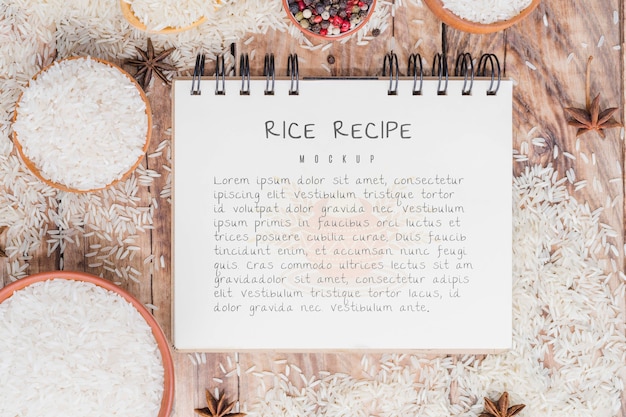 RICE RECIPE
MOCKUP
Lorem ipsum dolor sit amet, consectetur
ipiscing elit vestibulum tristique tortor
at volutpat dolor gravida nec vestibulum
trices primis in faucibus orci luctus et
trices posuere cubilia curae. Duis faucib
tincidunt enim, et accumsan nunc feugi
quis. Cras commodo ultrices lectus ac
gravidadolor sit amet, consectetur adipis
elit. Vestibulum tristique tortor at volutp
dolor gravida nec vestibulum ante.